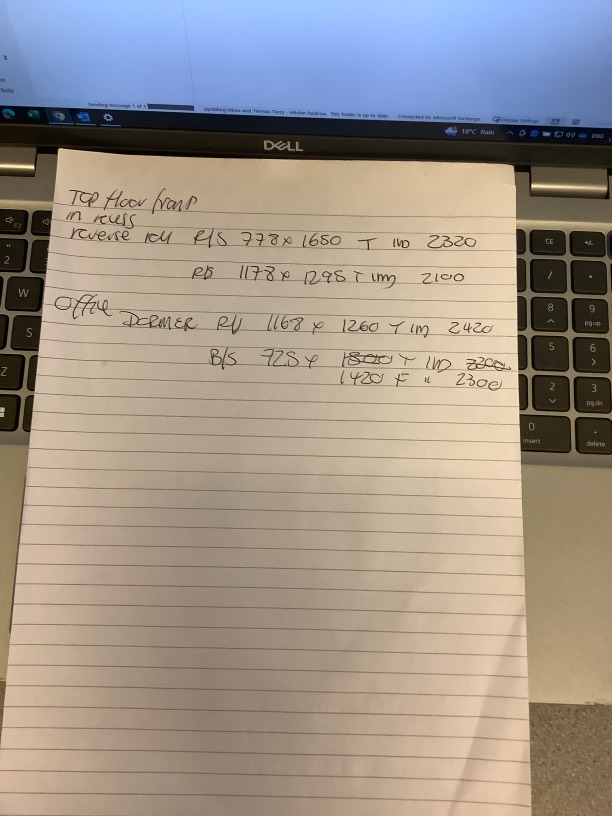 Sending message 1 of 1
Updating Inbox and
This folder is up to date.
Connected to: Microsoft Exchange
Display Settings
18°C Rain
ENG
DELL
Top floor front
in recess
reverse roll R/S 778 x 1650 T 2320
1178 x 1295 T 2100
Office
DORMER 1168 x 1260 T 2420
B/S 725 x 1800 T 2300
1420 F " 2300
F2
2
W
S
Z
CE
+/-
/
*
8
9
pg up
5
6
2
3
pg dn
0
insert
.
delete